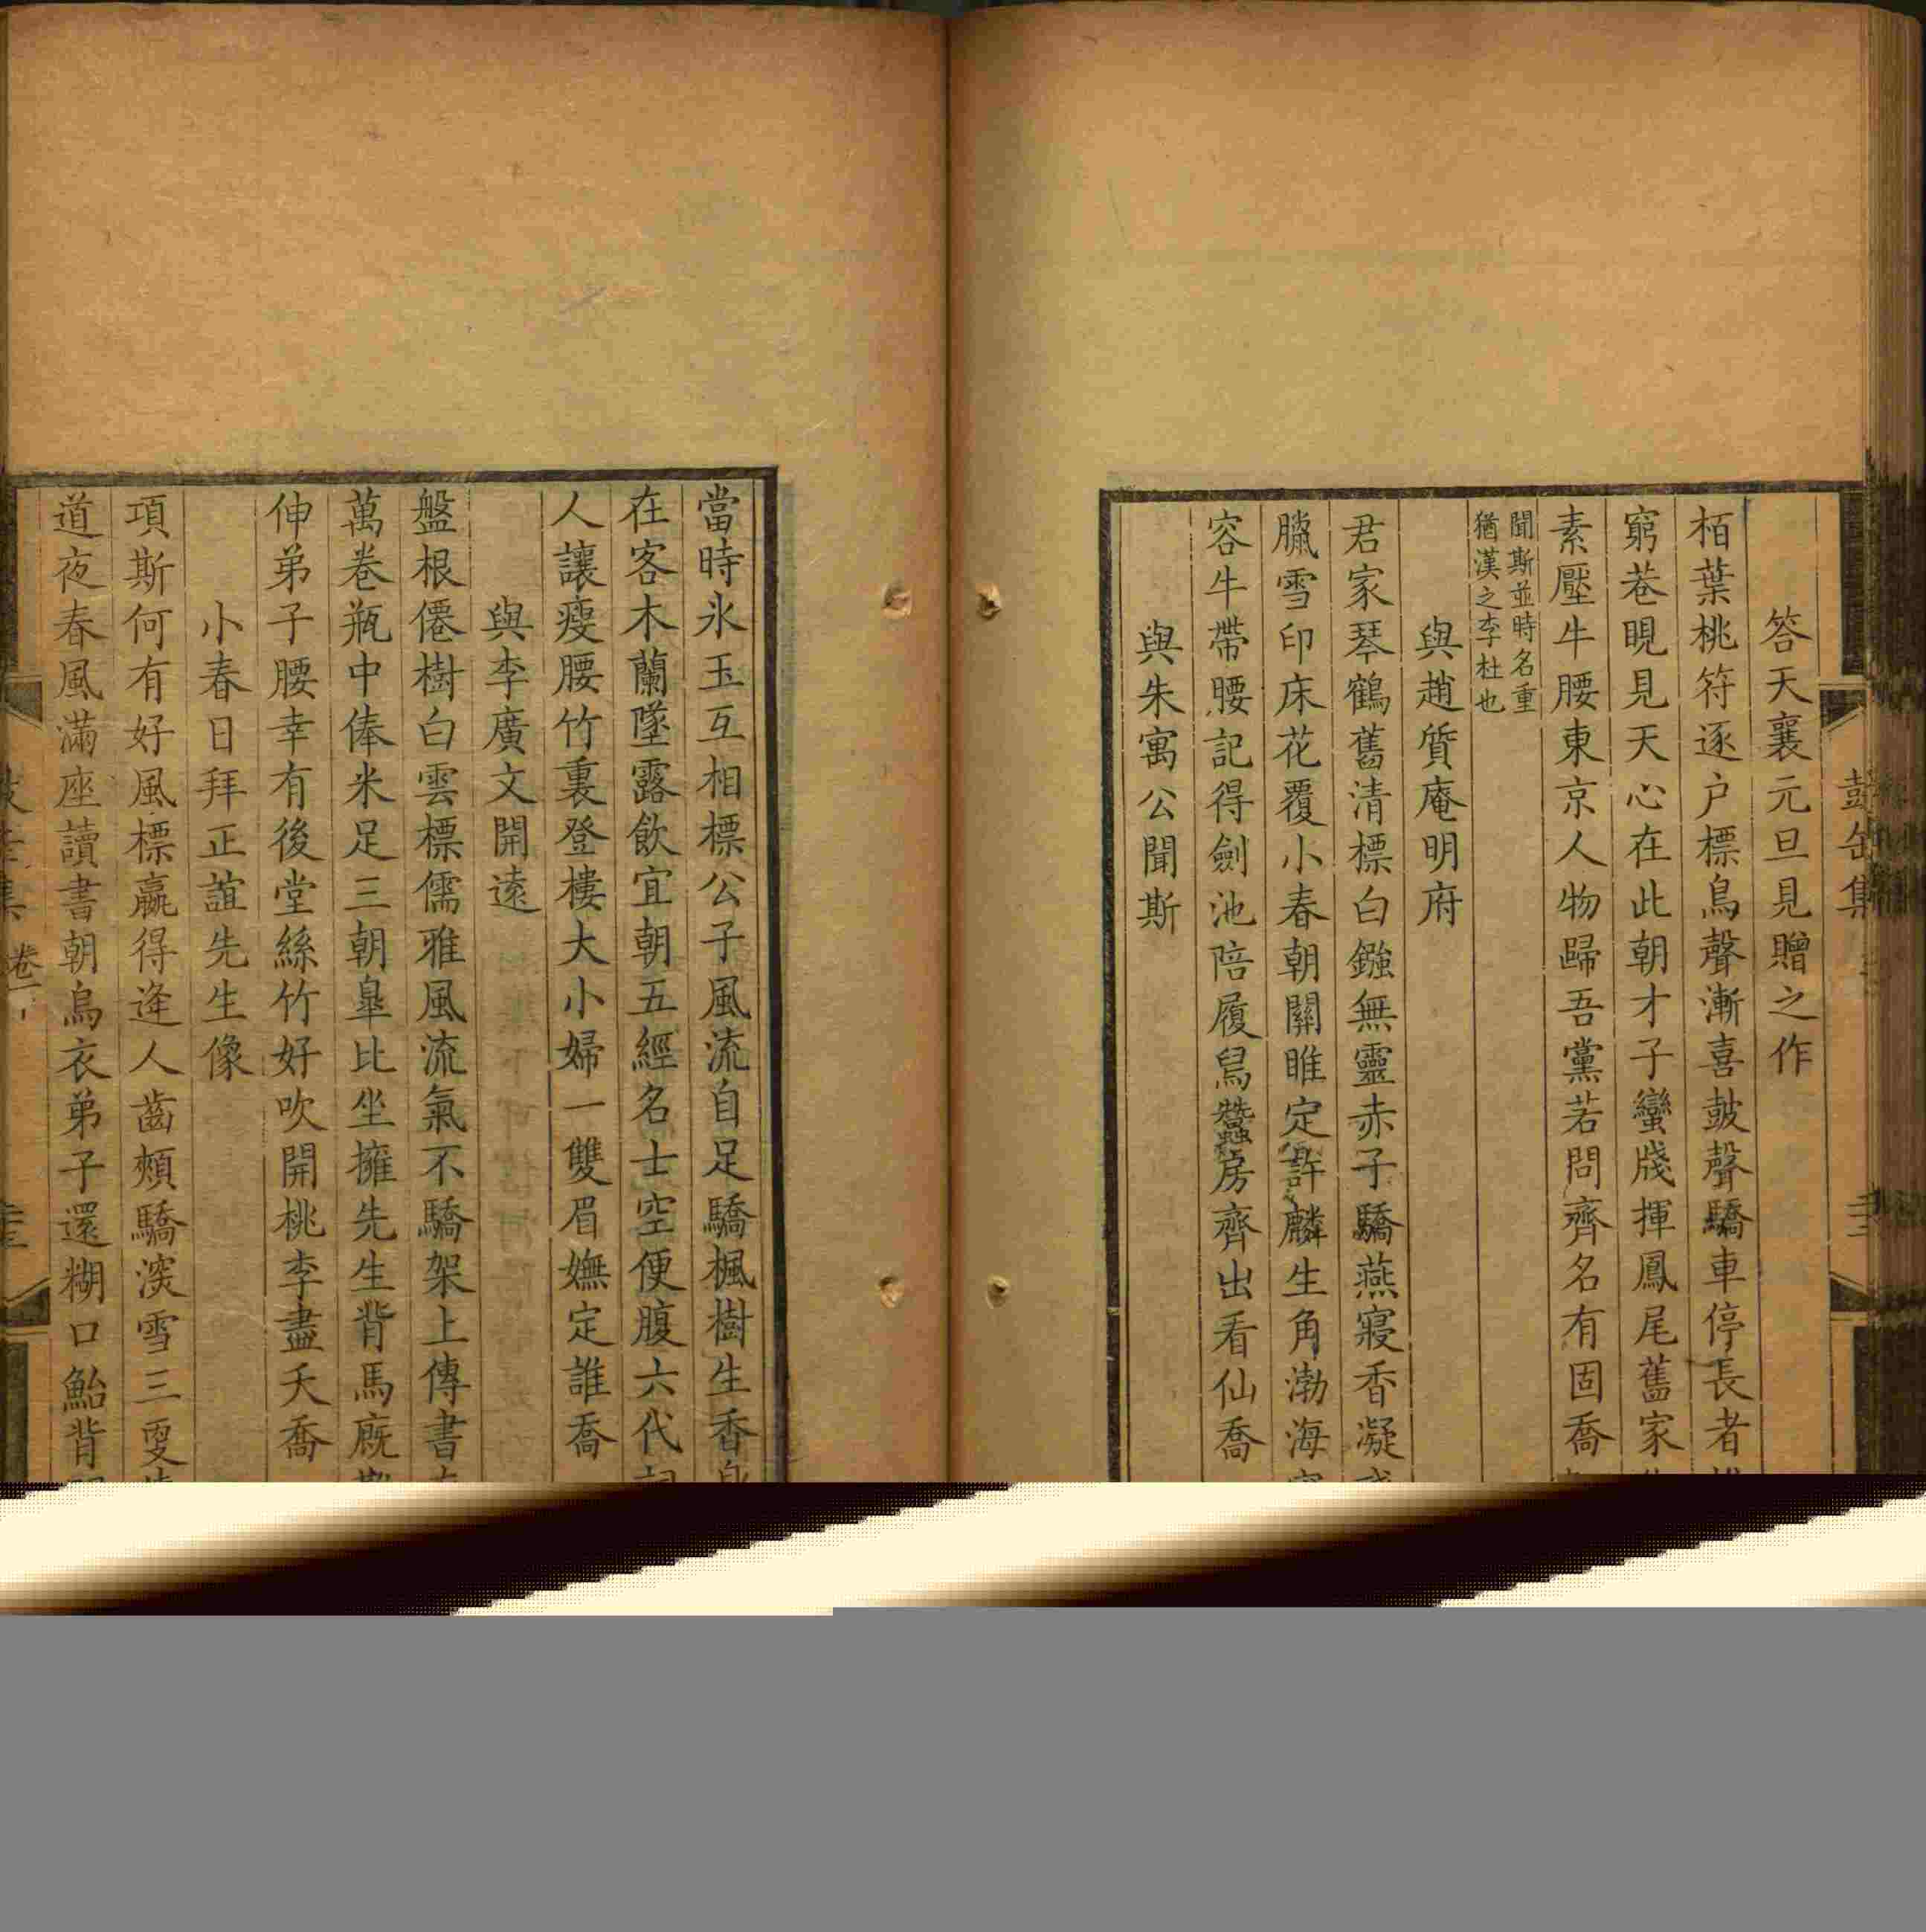 鼓缶集
答天襄元旦見贈之作
栢葉桃符逐户標鳥聲漸喜皷聲驕車停長者
窮巷晛見天心在此朝才子蠻牋揮鳳尾舊家
素壓牛腰東京人物歸吾黨若問齊名有固喬
聞斯並時名重
猶漢之李杜也
與趙質庵明府
君家琴鶴舊清標白鏹無靈赤子驕燕寢香凝
臘雪印床花覆小春朝關雎定許麟生角渤海
容牛帶腰記得劍池陪履舄蠶房齊出看仙喬
與朱寓公聞斯
當時氷玉互相標公子風流自足驕楓樹生香
在客木蘭墜露飲宜朝五經名士空便腹六代
人讓瘦腰竹裏登樓大小婦一雙眉嫵定誰喬
與李廣文開遠
盤根僊樹白雲標儒雅風流氣不驕架上傳書
萬卷瓶中俸米足三朝臯比坐擁先生背馬廐
伸弟子腰幸有後堂絲竹好吹開桃李盡夭喬
小春日拜正誼先生像
項斯何有好風標贏得逢人齒頰驕深雪三
道夜春風滿座讀書朝烏衣弟子還糊口鮐背
卷二